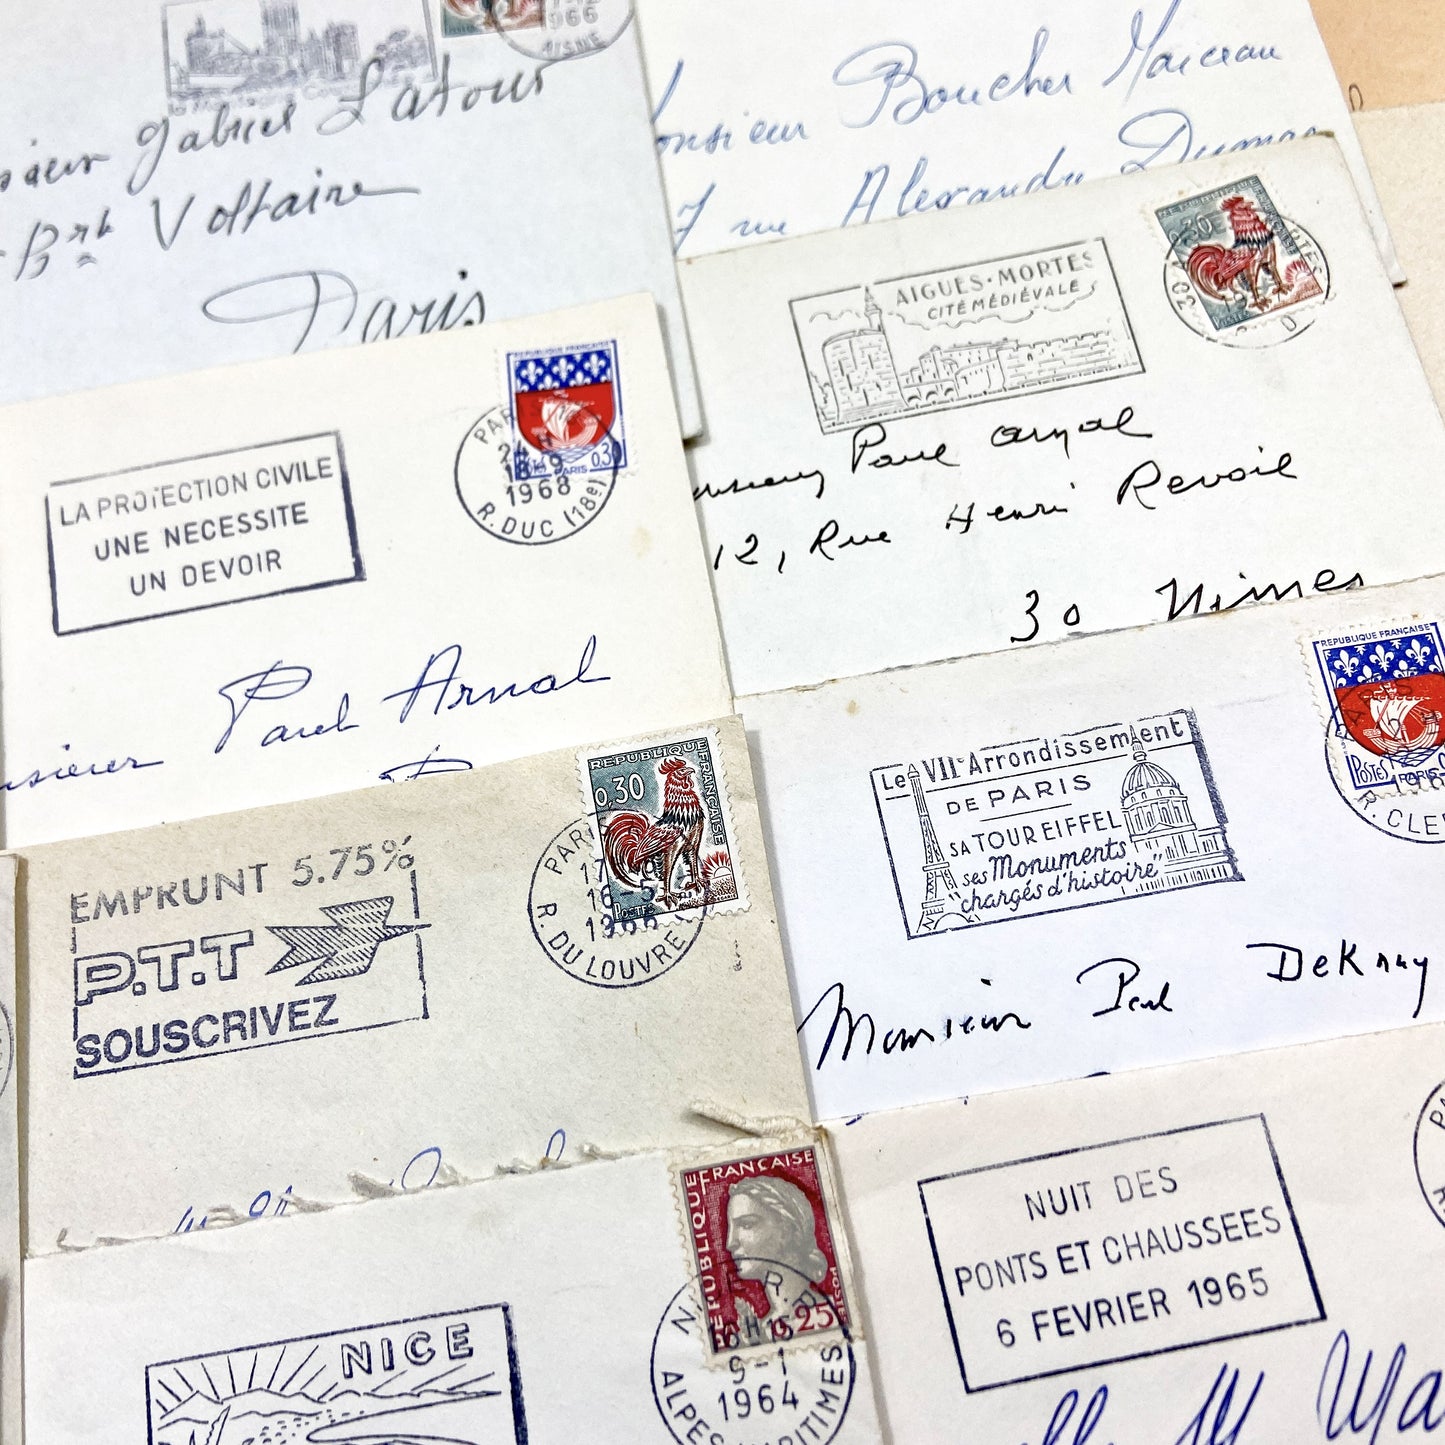 1966
AISNE
Gabriel Latour
Voltaire
Paris
Boucher Marceau
7 rue Alexandre Dumas
AIGUES-MORTES
CITÉ MÉDIÉVALE
0,30
30 AIGUES-MORTES
Paul Arnal
12, Rue Henri Revoil
30 Nimes
LA PROTECTION CIVILE
UNE NECESSITE
UN DEVOIR
REPUBLIQUE FRANÇAISE
POSTES PARIS 0,30
24 H
18-9
1968
R. DUC (18e)
Paul Arnal
EMPRUNT 5.75%
P.T.T
SOUSCRIVEZ
REPUBLIQUE FRANÇAISE
0,30
POSTES
PARIS
16-5
1966
R. DU LOUVRE
Le VIIe Arrondissement
DE PARIS
SA TOUR EIFFEL
ses Monuments
"chargés d'histoire"
REPUBLIQUE FRANÇAISE
POSTES PARIS
R. CLE
Monsieur Paul
NICE
REPUBLIQUE FRANÇAISE
POSTES
0,25
16H15
9-1
1964
ALPES MARITIMES
NUIT DES
PONTS ET CHAUSSEES
6 FEVRIER 1965